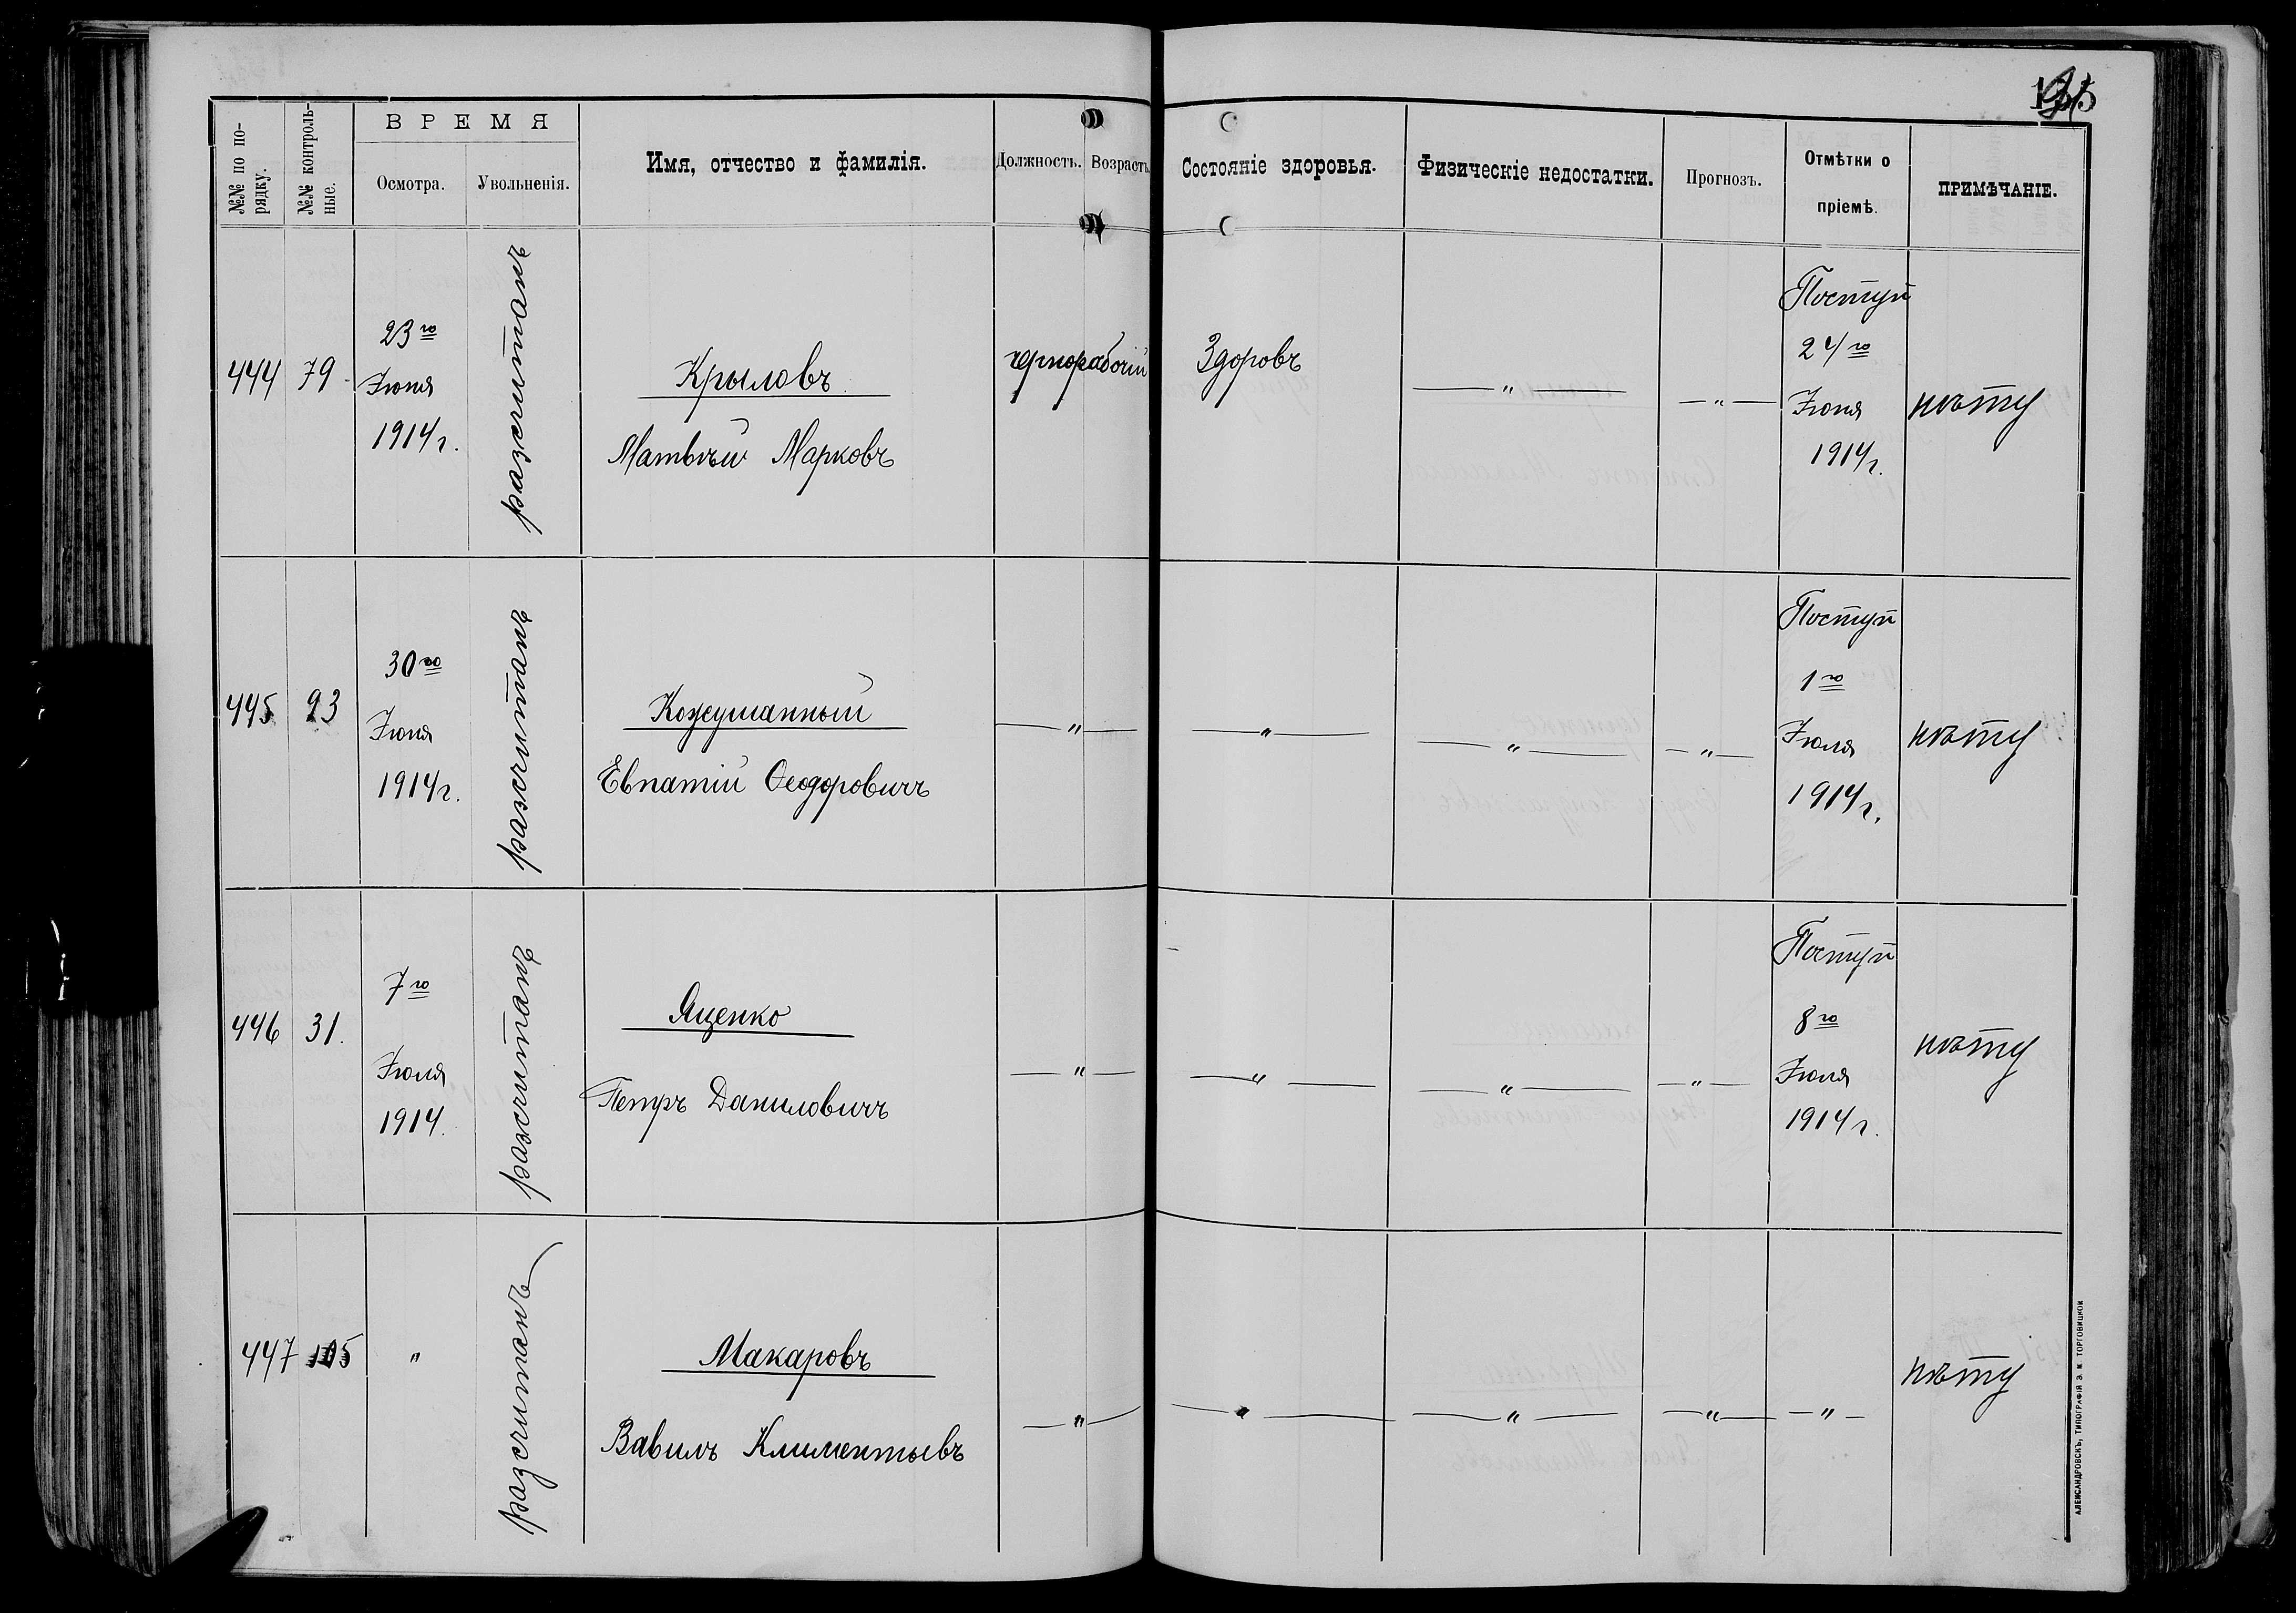 №№ по по-
рядку.
№№ контроль-
ные.
ВРЕМЯ
Осмотра.
Увольненія.
Имя, отчество и фамилія.
Должность.
Возрастъ
Состояніе здоровья.
Физическіе недостатки.
Прогнозъ.
Отмѣтки о
пріемѣ.
ПРИМѢЧАНІЕ.
444
79
23го
Іюня
1914г.
разсчитанъ
Крыловъ
Матвѣй Марковъ
чернорабочій
Здоровъ
— " —
— " —
Поступ
24го
Іюня
1914г.
нѣту
445
93
30го
Іюня
1914г.
разсчитанъ
Кожушанный
Евпатій Ѳеодоровичъ
— " —
— " —
— " —
— " —
Поступ
1го
Іюля
1914г.
нѣту
446
31.
7го
Іюля
1914.
разсчитанъ
Яценко
Петръ Даниловичъ
— " —
— " —
— " —
— " —
Поступ
8го
Іюля
1914г.
нѣту
447
105
"
разсчитанъ
Макаровъ
Вавилъ Климентьевъ
— " —
— " —
— " —
— " —
— " —
нѣту
АЛЕКСАНДРОВСКЪ, ТИПОГРАФІЯ Э. М. ТОРГОВИЦКОЙ